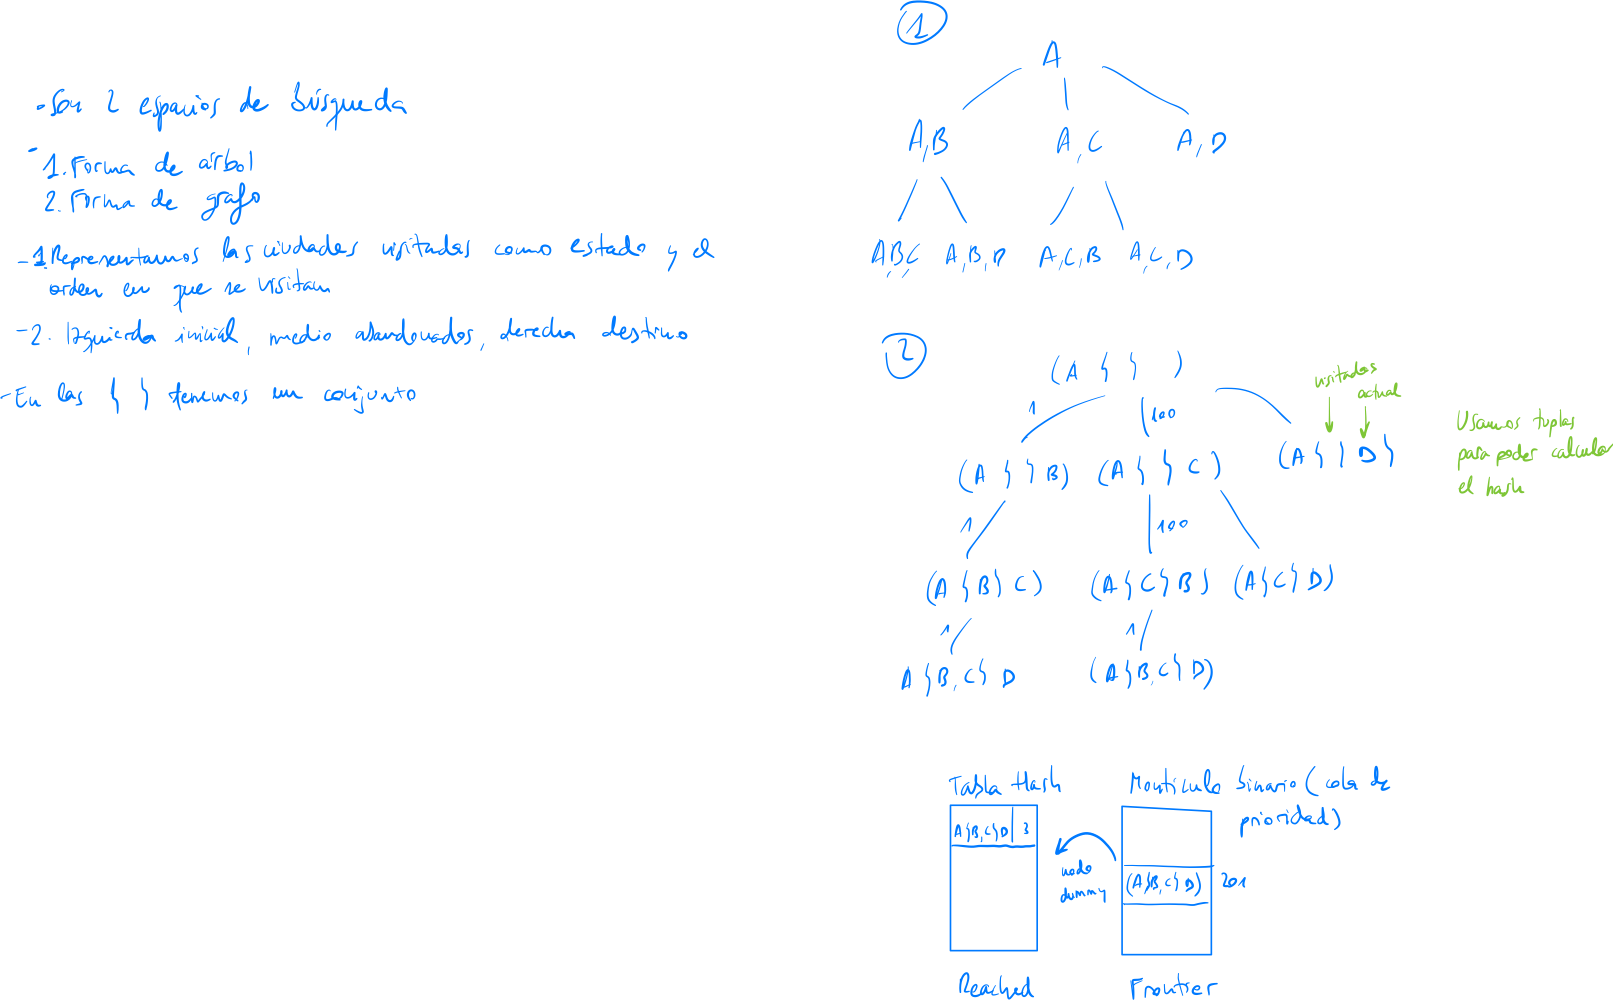 - Son 2 espacios de búsqueda
- 1. Forma de árbol
2. Forma de grafo
- 1. Representamos las ciudades visitadas como estado y el
orden en que se visitan
- 2. Izquierda inicial, medio abandonados, derecha destino
- En las { } tenemos un conjunto
1
A
A,B A,C A,D
A,B,C A,B,D A,C,B A,C,D
2
(A { } )
1 100
visitados
actual
(A { } B) (A { } C) (A { } D}
Usamos tuplas
para poder calcular
el hash
1 100
(A {B} C) (A {C} B) (A {C} D)
1 1
A {B,C} D (A {B,C} D)
Tabla Hash Montículo binario (cola de
prioridad)
A{B,C}D 3
nodo
dummy
(A{B,C} D) 201
Reached Frontier